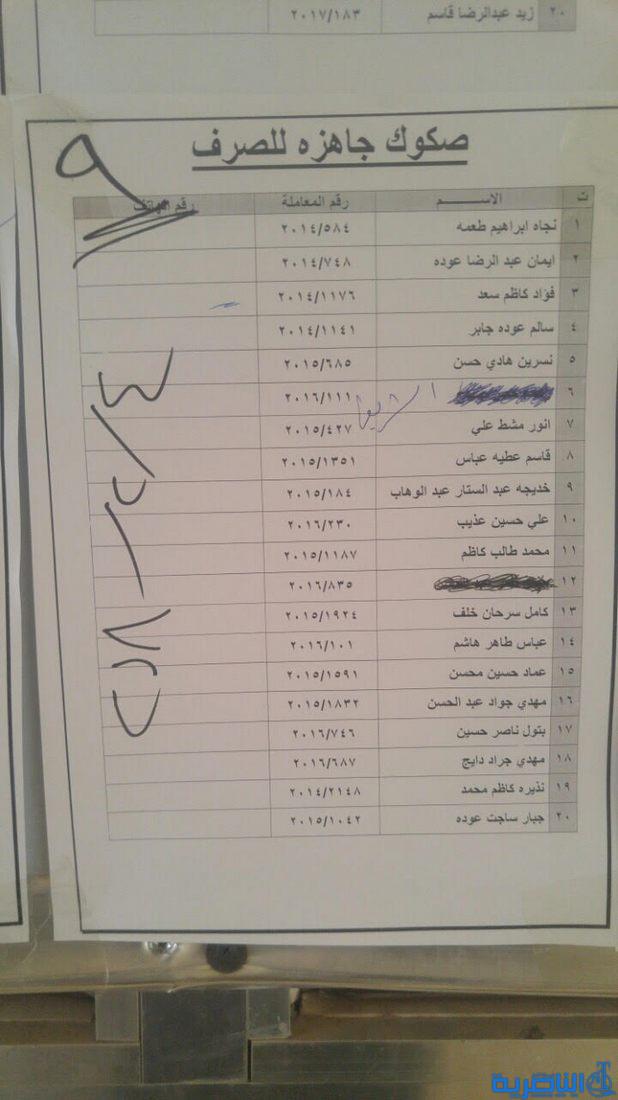 ٢٠ زيد عبدالرضا قاسم ٢٠١٧/١٨٣
٩
صكوك جاهزه للصرف
ت الاســـــم رقم المعاملة رقم الهاتف
١ نجاه ابراهيم طعمه ٢٠١٤/٥٨٤
٢ ايمان عبد الرضا عوده ٢٠١٤/٧٤٨
٣ فؤاد كاظم سعد ٢٠١٤/١١٧٦
٤ سالم عوده جابر ٢٠١٤/١١٤١
٥ نسرين هادي حسن ٢٠١٥/٦٨٥
٦ ٢٠١٦/١١١
٧ انور مشط علي ٢٠١٥/٤٢٧
٨ قاسم عطيه عباس ٢٠١٥/١٣٥١
٩ خديجه عبد الستار عبد الوهاب ٢٠١٥/١٨٤
١٠ علي حسين عذيب ٢٠١٦/٢٣٠
١١ محمد طالب كاظم ٢٠١٥/١١٨٧
١٢ ٢٠١٦/٨٣٥
١٣ كامل سرحان خلف ٢٠١٥/١٩٢٤
١٤ عباس طاهر هاشم ٢٠١٦/١٠١
١٥ عماد حسين محسن ٢٠١٥/١٥٩١
١٦ مهدي جواد عبد الحسن ٢٠١٥/١٨٣٢
١٧ بتول ناصر حسين ٢٠١٦/٧٤٦
١٨ مهدي جراد دايج ٢٠١٦/٦٨٧
١٩ نذيره كاظم محمد ٢٠١٤/٢١٤٨
٢٠ جبار ساجت عوده ٢٠١٥/١٠٤٢
الناصرية